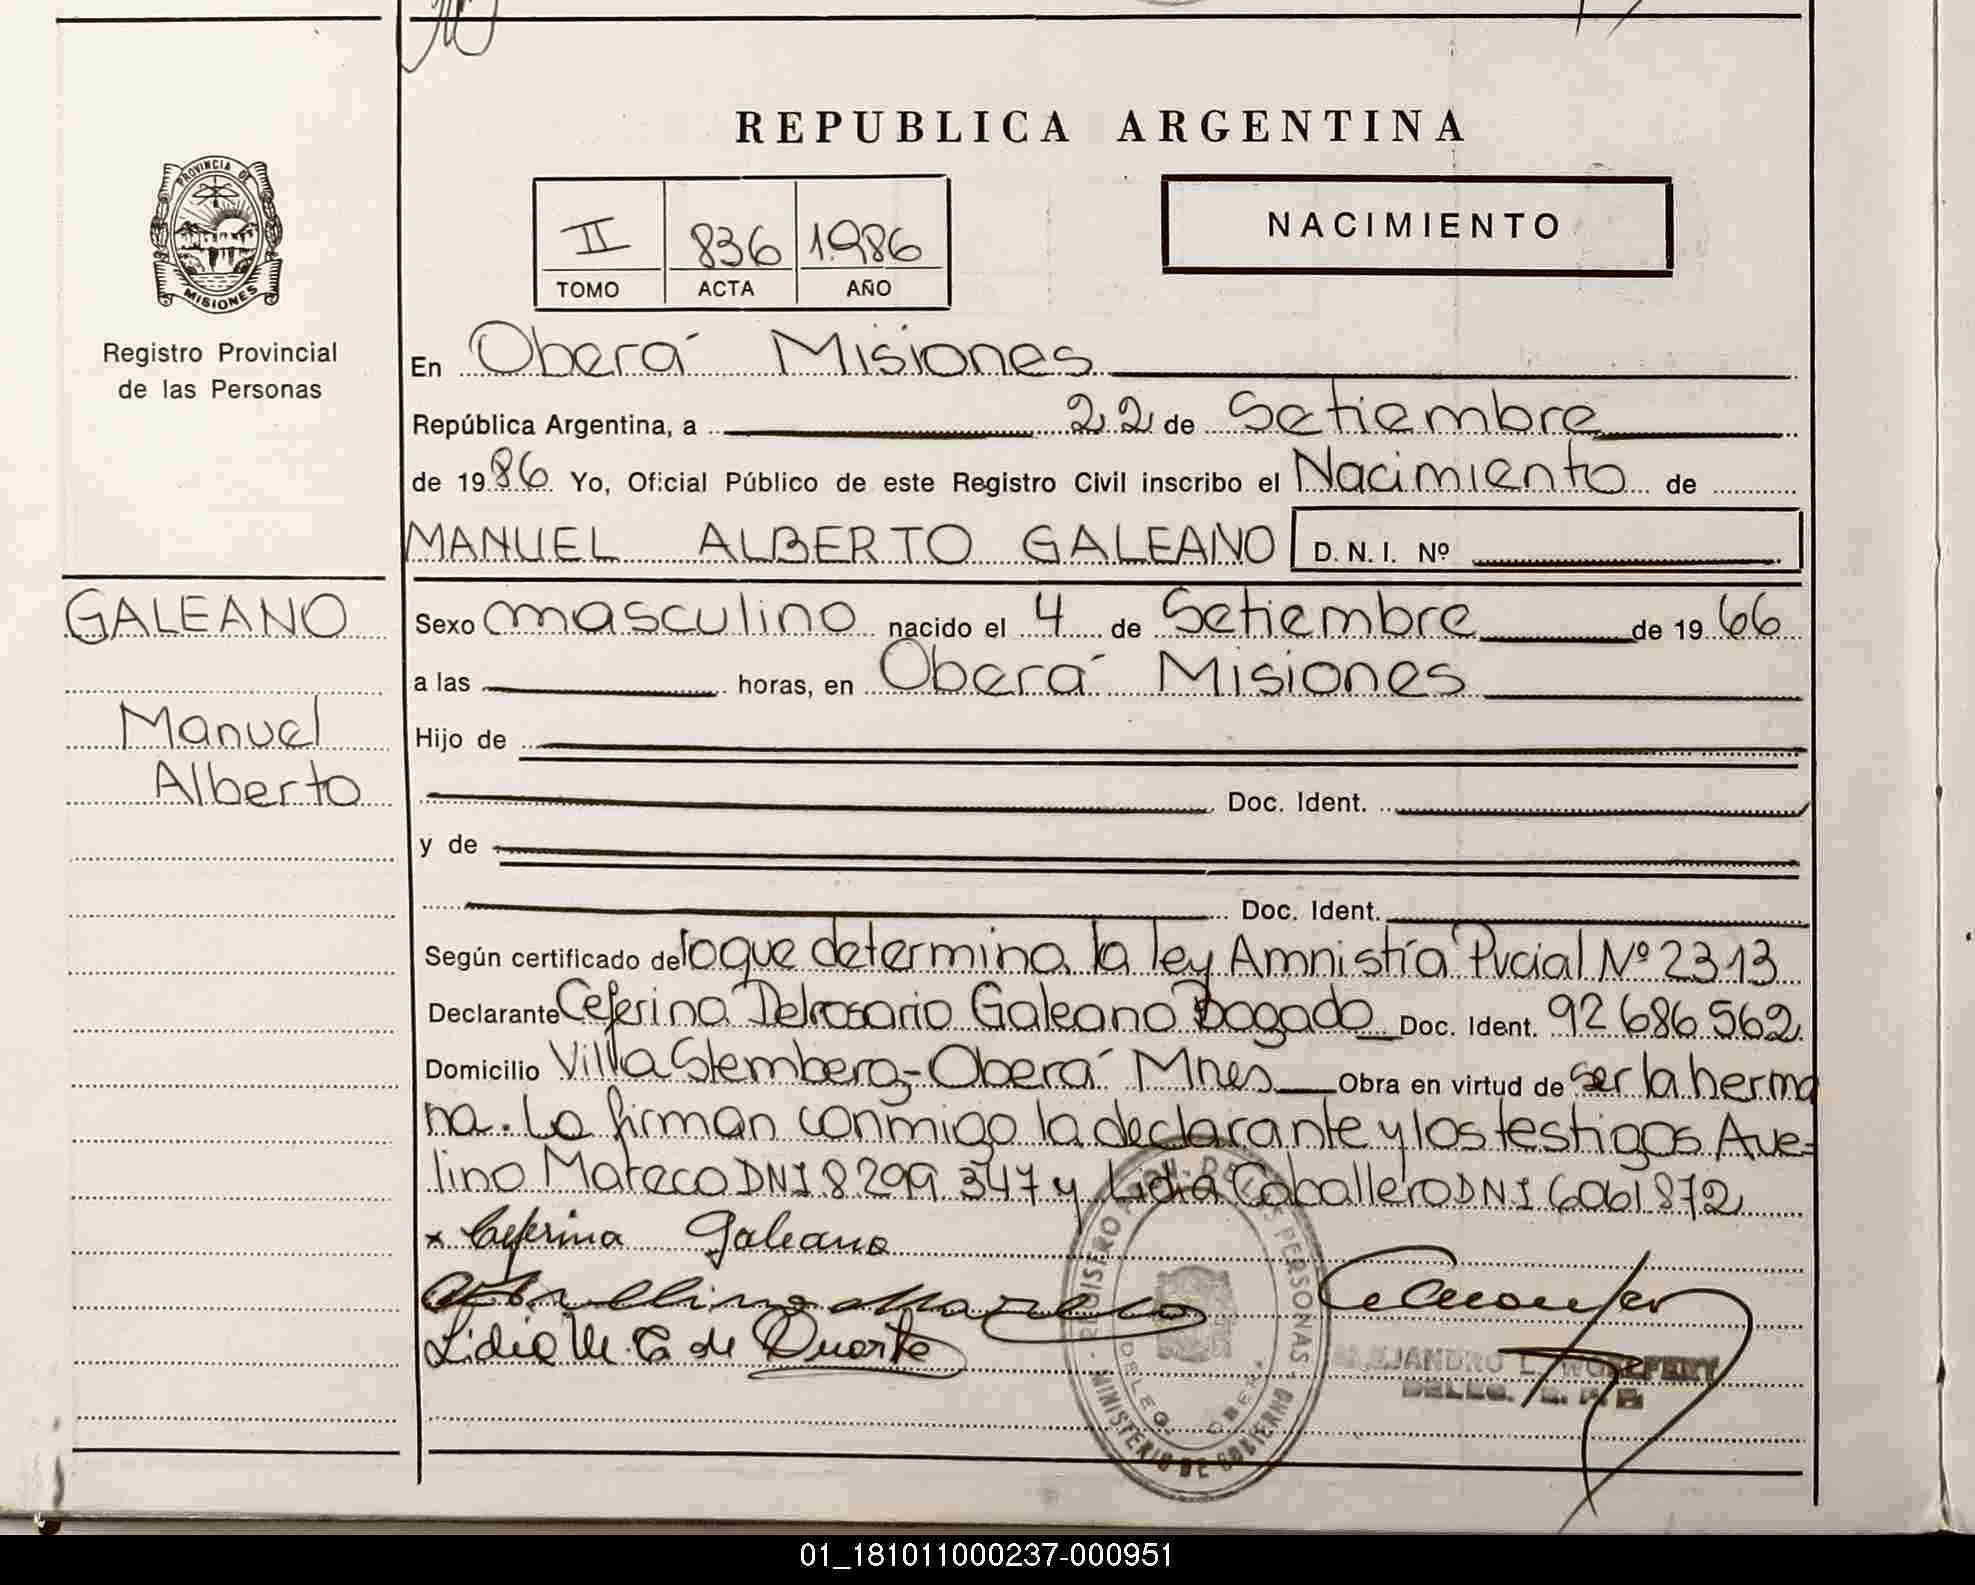 REPUBLICA ARGENTINA
PROVINCIA DE
MISIONES
Registro Provincial
de las Personas
II 836 1.986
TOMO ACTA AÑO
NACIMIENTO
En Oberá Misiones
República Argentina, a 22 de Setiembre
de 1986 Yo, Oficial Público de este Registro Civil inscribo el Nacimiento de
MANUEL ALBERTO GALEANO D. N. I. Nº
GALEANO
Manuel
Alberto
Sexo masculino nacido el 4 de Setiembre de 1966
a las horas, en Oberá Misiones
Hijo de
Doc. Ident.
y de
Doc. Ident.
Según certificado de loque determina la ley Amnistía Pvcial Nº 2313
Declarante Ceferina Delrosario Galeano Bogado Doc. Ident. 92 686 562
Domicilio Villa Stemberg-Oberá Mnes Obra en virtud de ser la herma
na. Lo firman conmigo la declarante y los testigos Ave-
lino Mareco DNI 8 299 347 y Lidia Caballero DNI 6061872
x Ceferina Galeano
Lidia M. C de Duarte
REGISTRO DE LAS PERSONAS
MINISTERIO DE GOBIERNO
DELEG. OBERA
ALEJANDRO L.
01_181011000237-000951